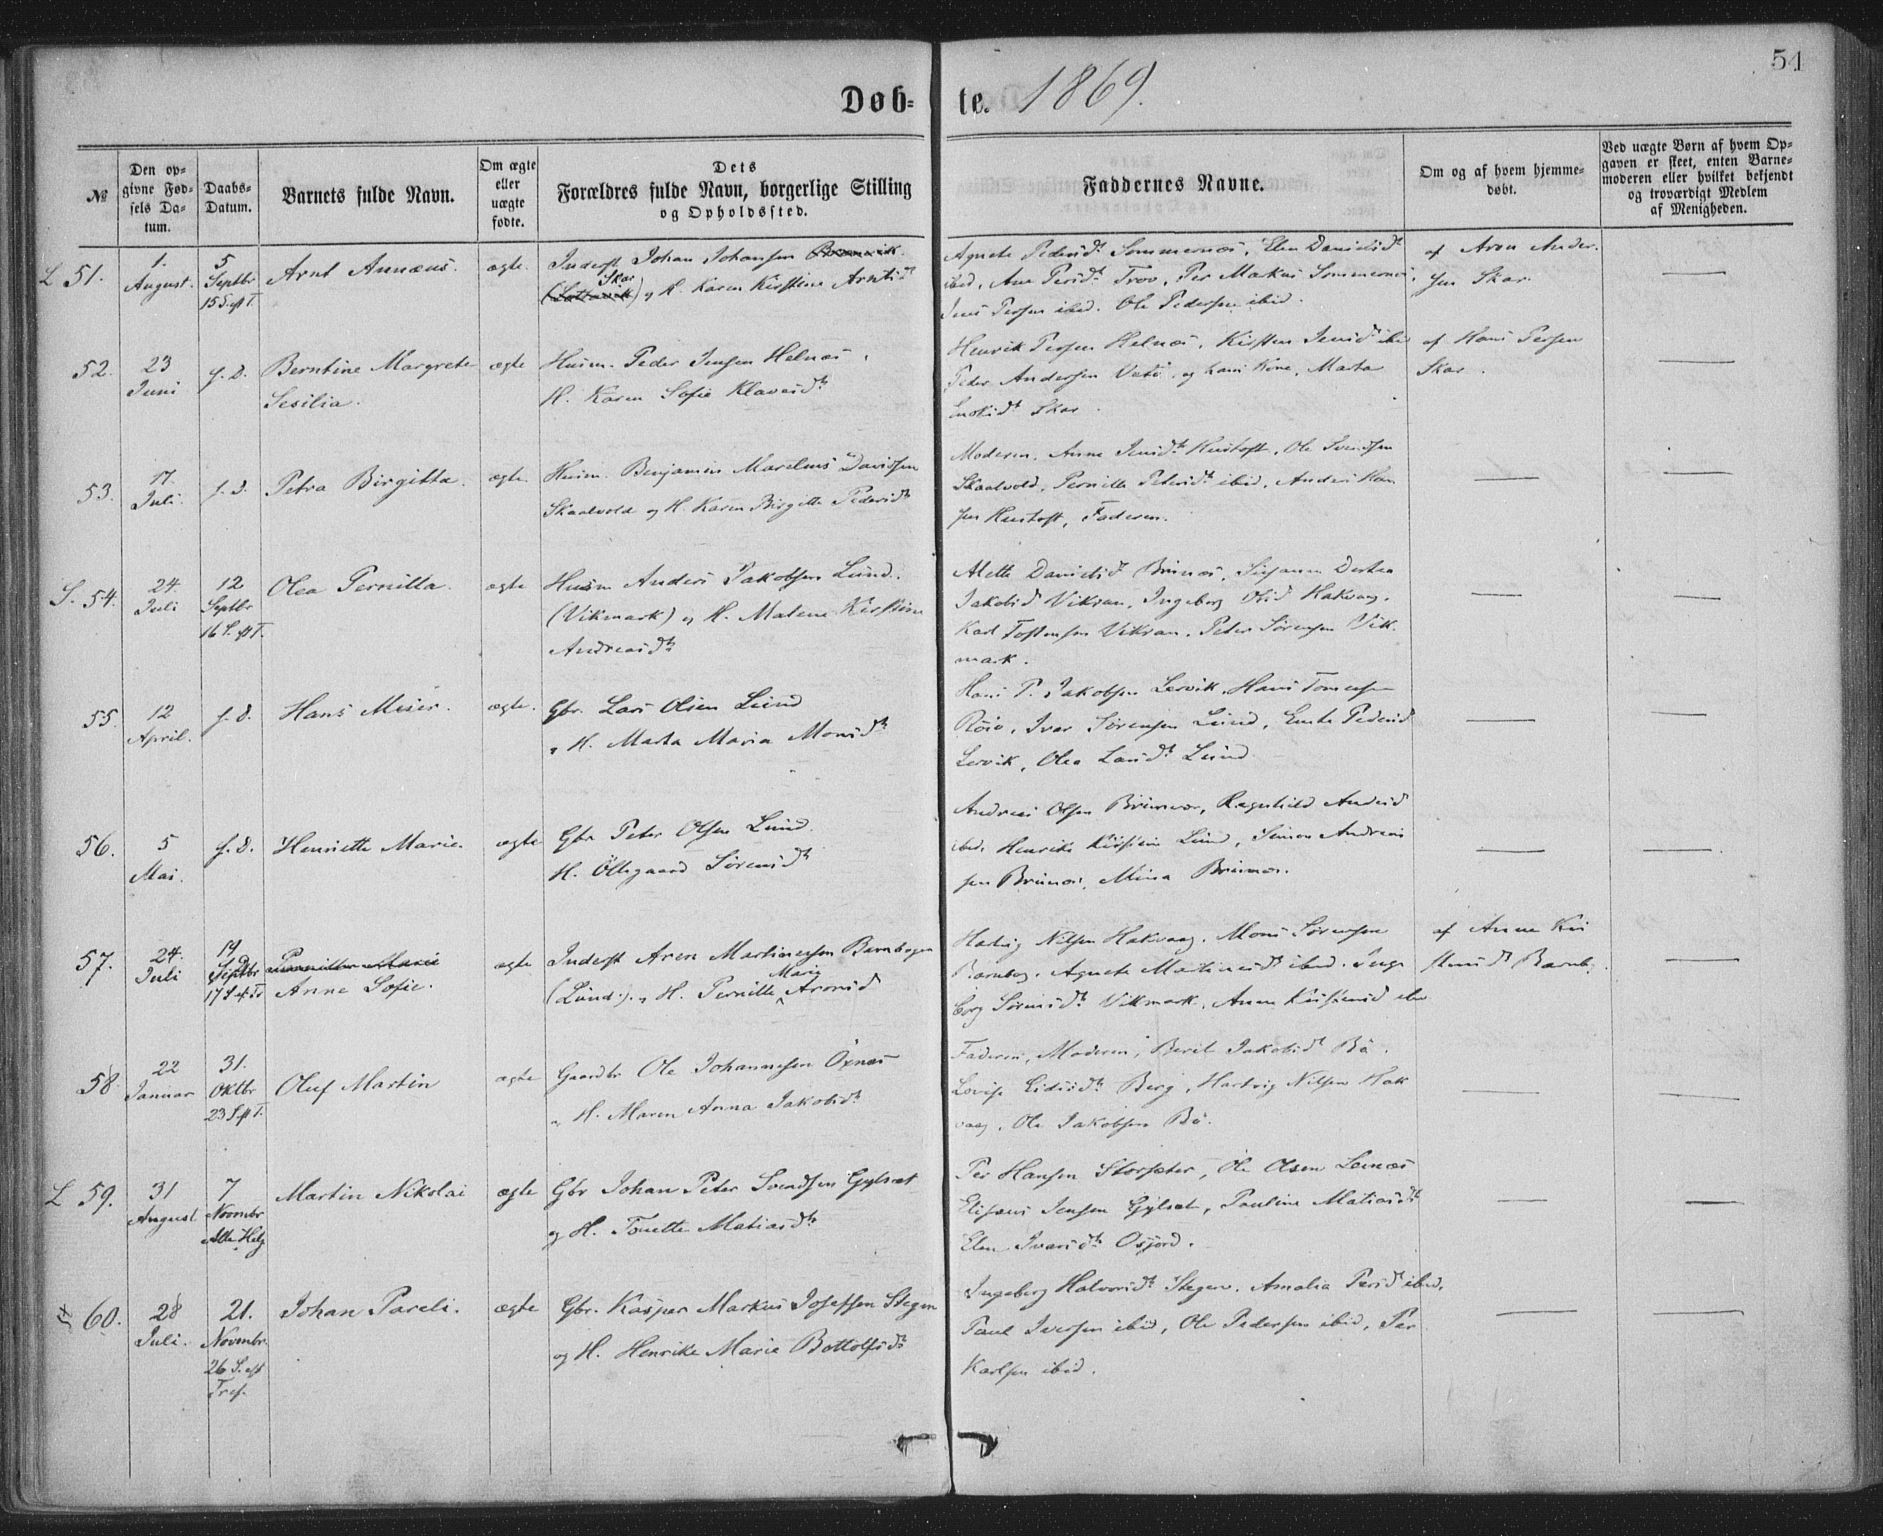 54
Døb= te. 1869.
№
Den op=
givne Fød=
sels Da=
tum.
Daabs=
Datum.
Barnets fulde Navn.
Om ægte
eller
uægte
fødte.
Dets
Forældres fulde Navn, borgerlige Stilling
og Opholdssted.
Faddernes Navne.
Om og af hvem hjemme=
døbt.
Ved uægte Børn af hvem Op=
gaven er skeet, enten Barne=
moderen eller hvilket bekjendt
og troværdigt Medlem
af Menigheden.
L 51.
1.
August.
5
Septbr
15 S. eft T.
Arnt Annæus.
ægte
Inderst Johan Johansen
Skar
og H. Karen Kirstine Arntsdtr
Agnete Pedersdtr Sommernæs, Elen Danielsdtr
ibid, Ane Persdtr Trov, Per Markus Sommernæs,
Jens Persen ibid. Ole Pedersen ibid.
af Aron Ander
sen Skar.
52.
23
Juni
s. d.
Berntine Margrete
Sesilia.
ægte
Husm. Peder Jensen Helnæs,
H. Karen Sofie Klausdtr
Henrik Persen Helnæs, Kirsten Jensdtr ibid
Peder Andersen, og hans Kone, Marta
Enoksdtr Skar.
af Hans Persen
Skar.
53.
17.
Juli.
s. d.
Petra Birgitta.
ægte
Husm. Benjamin Marelius Davidsen
Skaalvold og H. Karen Birgitte Pedersdtr
Moderen, Anne Jensdtr Hustoft, Ole Svendsen
Skaalvold, Pernille Petersdtr ibid, Anders Han
sen Hustoft, Faderen.
S. 54.
24.
Juli
12
Septbr
16 S. eft T.
Olea Pernilla.
ægte
Husm Anders Jakobsen Lund.
(Vikmark) og H. Malene Kirstine
Andreasdtr
Mette Danielsd Brunæs, Susanna Dortea
Jakobsd Vikran, Ingeborg Olsd Hakvaag.
Karl Tostensen Vikran. Peter Sørensen Vik
mark.
55.
12
April.
s. d.
Hans Meier.
ægte.
Gbr. Lars Olsen Lund
og H. Marta Maria Monsdtr
Hans P. Jakobsen Lervik. Hans Tomesen
Ivar Sørensen Lund, Pedersd
Lervik, Olea Larsdtr Lund.
56.
5
Mai.
s. d.
Henriette Marie.
ægte
Gbr. Peter Olsen Lund.
H. Ollegaard Sørensdtr
Andreas Olsen Brunæs, Ragnhild Andersd
ibid. Henrikke Lund, Simon Andrea
sen Brunæs, Mina Brunæs.
57.
24.
Juli
19
Septbr
17 S. eft Tr
Anne Sofie.
ægte
Inderst Aron Martinussen Barnbogen
(Lund.) og H. Pernille Marie Aronsd
Hartvig Nilsen Hakvaag. Mons Sørensen
Barnbog. Agnete Martinusdtr ibid. Inge
borg Sørensdtr Vikmark. Anne Kristensd ibid
af Anne Kri
stensdtr Barnb.
58.
22
Januar
31.
Oktbr
23 S. eft T.
Oluf Martin
ægte
Gaardbr Ole Johannesen Øxnæs
og H. Maren Anna Jakobsdtr
Faderen, Moderen, Beret Jakobsdtr Bø.
Lovise Berg, Hartvig Nilsen Hak
vaag, Ole Jakobsen Bø.
L 59.
31
August
7
Novembr
Alle Helg
Martin Nikolai
ægte
Gbr Johan Peter Svendsen Gylset
og H. Tonette Matiasdtr
Per Hansen Storsæter, Ole Olsen Lenæs
Elisæus Jensen Gylset, Pauline Matiasdtr
Elen Ivarsdtr Osjord.
60.
28
Juli.
21.
Novembr.
26 S. eft
Tref.
Johan Pareli.
ægte
Gbr. Kaspar Markus Josefsen Stegen
og H. Henrike Marie Bottolfsdtr
Ingeborg Halvorsdtr Stegen. Amalia Persdtr ibid.
Paul Iversen ibid, Ole Pedersen ibid, Per
Karlsen ibid.